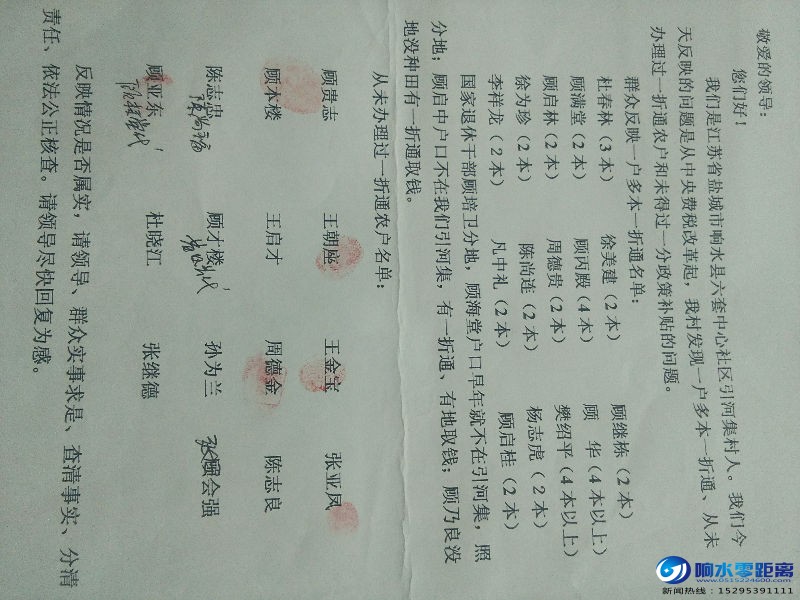 敬爱的领导：
您们好！
我们是江苏省盐城市响水县六套中心社区引河集村人。我们今
天反映的问题是从中央费税改革起，我村发现一户多本一折通、从未
办理过一折通农户和未得过一分政策补贴的问题。
群众反映一户多本一折通名单：
杜春林（3本） 徐美建（2本） 顾继栋（2本）
顾满堂（2本） 顾丙殿（4本） 顾 华（4本以上）
顾启林（2本） 周德贵（2本） 樊绍平（4本以上）
徐为珍（2本） 陈尚连（2本） 杨志虎（2本）
李祥龙（2本） 凡中礼（2本） 顾启桂（2本）
国家退休干部顾培卫分地，顾海堂户口早年就不在引河集，照
分地；顾启中户口不在我们引河集，有一折通、有地取钱；顾乃良没
地没种田有一折通取钱。
从未办理过一折通农户名单：
顾贵志 王朝座 王金宝 张亚凤
顾本楼 王启才 周德金 陈志良
陈志忠 顾才楼 孙为兰 张会强
顾亚东 杜晓江 张继德
反映情况是否属实，请领导、群众实事求是、查清事实、分清
责任、依法公正核查。请领导尽快回复为感。
响水零距离
www.0515224600.com
新闻热线：15295391111